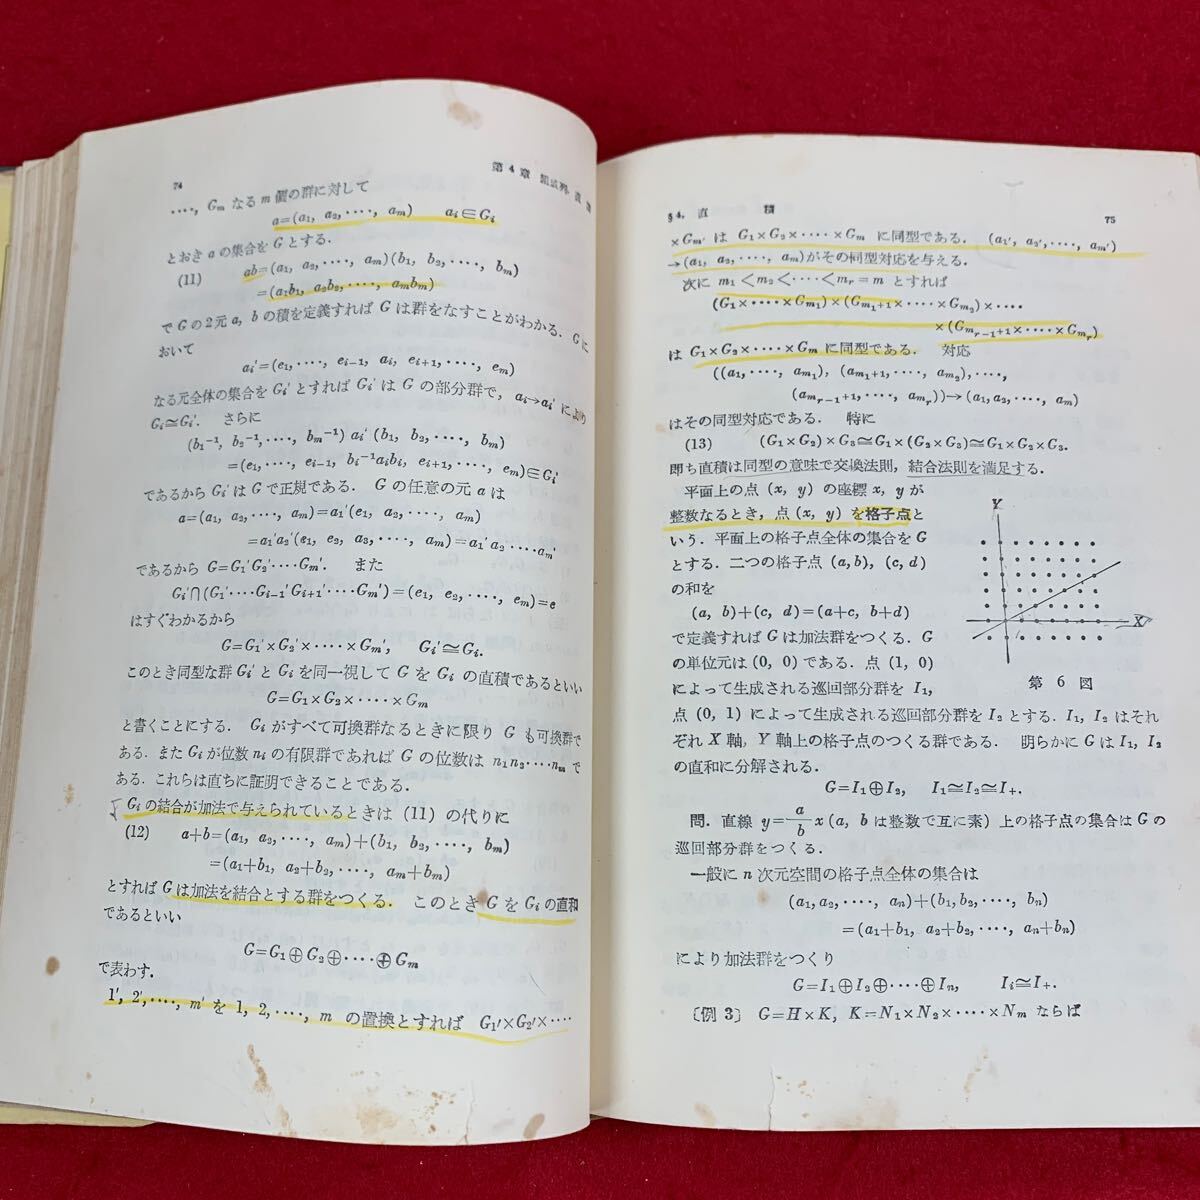 74
第4章 組成列,直積
····, Gm なる m 個の群に対して
a=(a₁, a₂,····, am) aᵢ∈Gᵢ
とおき a の集合を G とする.
(11) ab=(a₁, a₂,····, am)(b₁, b₂,····, bm)
=(a₁b₁, a₂b₂,····, ambm)
で G の2元 a, b の積を定義すれば G は群をなすことがわかる. G に
おいて
aᵢ′=(e₁,····, eᵢ₋₁, aᵢ, eᵢ₊₁,····, em)
なる元全体の集合を Gᵢ′ とすれば Gᵢ′ は G の部分群で, aᵢ→aᵢ′ により
Gᵢ≃Gᵢ′. さらに
(b₁⁻¹, b₂⁻¹,····, bm⁻¹) aᵢ′ (b₁, b₂,····, bm)
=(e₁,····, eᵢ₋₁, bᵢ⁻¹aᵢbᵢ, eᵢ₊₁,····, em)∈Gᵢ′
であるから Gᵢ′ は G で正規である. G の任意の元 a は
a=(a₁, a₂,····, am)=a₁′(e₁, a₂,····, am)
=a₁′a₂′(e₁, e₂, a₃,····, am)=a₁′a₂′····am′
であるから G=G₁′G₂′····Gm′. また
Gᵢ′∩(G₁′····Gᵢ₋₁′Gᵢ₊₁′····Gm′)=(e₁, e₂,····, em)=e
はすぐわかるから
G=G₁′×G₂′×····×Gm′, Gᵢ′≃Gᵢ.
このとき同型な群 Gᵢ′ と Gᵢ を同一視して G を Gᵢ の直積であるといい
G=G₁×G₂×····×Gm
と書くことにする. Gᵢ がすべて可換群なるときに限り G も可換群で
ある. また Gᵢ が位数 nᵢ の有限群であれば G の位数は n₁n₂····nm で
ある. これらは直ちに証明できることである.
Gᵢ の結合が加法で与えられているときは (11) の代りに
(12) a+b=(a₁, a₂,····, am)+(b₁, b₂,····, bm)
=(a₁+b₁, a₂+b₂,····, am+bm)
とすれば G は加法を結合とする群をつくる. このとき G を Gᵢ の直和
であるといい
G=G₁⊕G₂⊕····⊕Gm
で表わす.
1′, 2′,····, m′ を 1, 2,····, m の置換とすれば G₁′×G₂′×····
§4. 直 積
75
×Gm′ は G₁×G₂×····×Gm に同型である. (a₁′, a₂′,····, am′)
→(a₁, a₂,····, am)がその同型対応を与える.
次に m₁<m₂<····<mr=m とすれば
(G₁×····×Gm₁)×(Gm₁₊₁×····×Gm₂)×····
×(Gmr₋₁₊₁×····×Gmr)
は G₁×G₂×····×Gm に同型である. 対応
((a₁,····, am₁), (am₁₊₁,····, am₂),····,
(amr₋₁₊₁,····, amr))→(a₁, a₂,····, am)
はその同型対応である. 特に
(13) (G₁×G₂)×G₃≃G₁×(G₂×G₃)≃G₁×G₂×G₃.
即ち直積は同型の意味で交換法則, 結合法則を満足する.
平面上の点 (x, y) の座標 x, y が
整数なるとき, 点 (x, y) を格子点と
いう. 平面上の格子点全体の集合を G
とする. 二つの格子点 (a, b), (c, d)
の和を
(a, b)+(c, d)=(a+c, b+d)
で定義すれば G は加法群をつくる. G
の単位元は (0, 0) である. 点 (1, 0)
によって生成される巡回部分群を I₁,
Y
X
第 6 図
点 (0, 1) によって生成される巡回部分群を I₂ とする. I₁, I₂ はそれ
ぞれ X 軸, Y 軸上の格子点のつくる群である. 明らかに G は I₁, I₂
の直和に分解される.
G=I₁⊕I₂, I₁≃I₂≃I₊.
問. 直線 y=a/b x (a, b は整数で互に素) 上の格子点の集合は G の
巡回部分群をつくる.
一般に n 次元空間の格子点全体の集合は
(a₁, a₂,····, an)+(b₁, b₂,····, bn)
=(a₁+b₁, a₂+b₂,····, an+bn)
により加法群をつくり
G=I₁⊕I₂⊕····⊕In, Iᵢ≃I₊.
〔例 3〕 G=H×K, K=N₁×N₂×····×Nm ならば